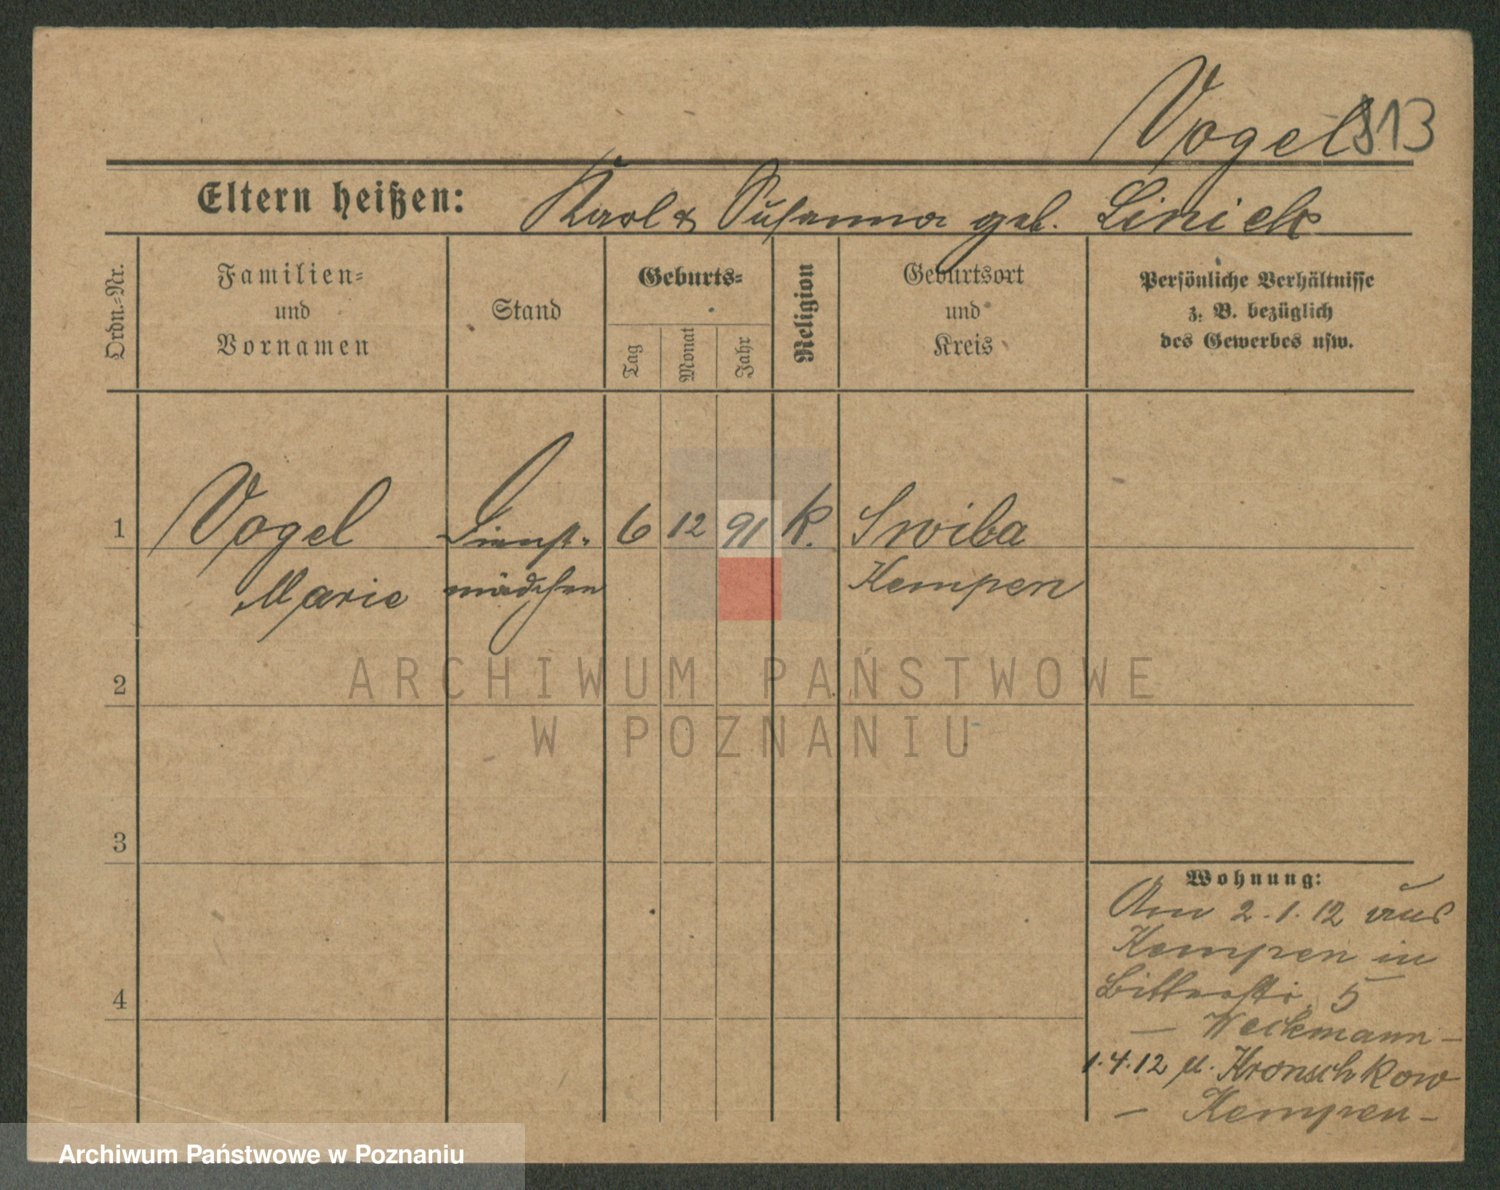 Vogel 813
Eltern heißen: Karl & Susanna geb. Linick
Ordn.-Nr.
Familien-
und
Vornamen
Stand
Geburts-
Tag
Monat
Jahr
Religion
Geburtsort
und
Kreis
Persönliche Verhältnisse
z. B. bezüglich
des Gewerbes usw.
1 Vogel Dienst- 6 12 91 k. Swiba
Marie mädchen Kempen
ARCHIWUM PAŃSTWOWE
2
W POZNANIU
3
Wohnung:
Am 2.1.12 aus
Kempen in
5
4
— Weckmann —
1.4.12 n. Kronschkow
— Kempen —
Archiwum Państwowe w Poznaniu